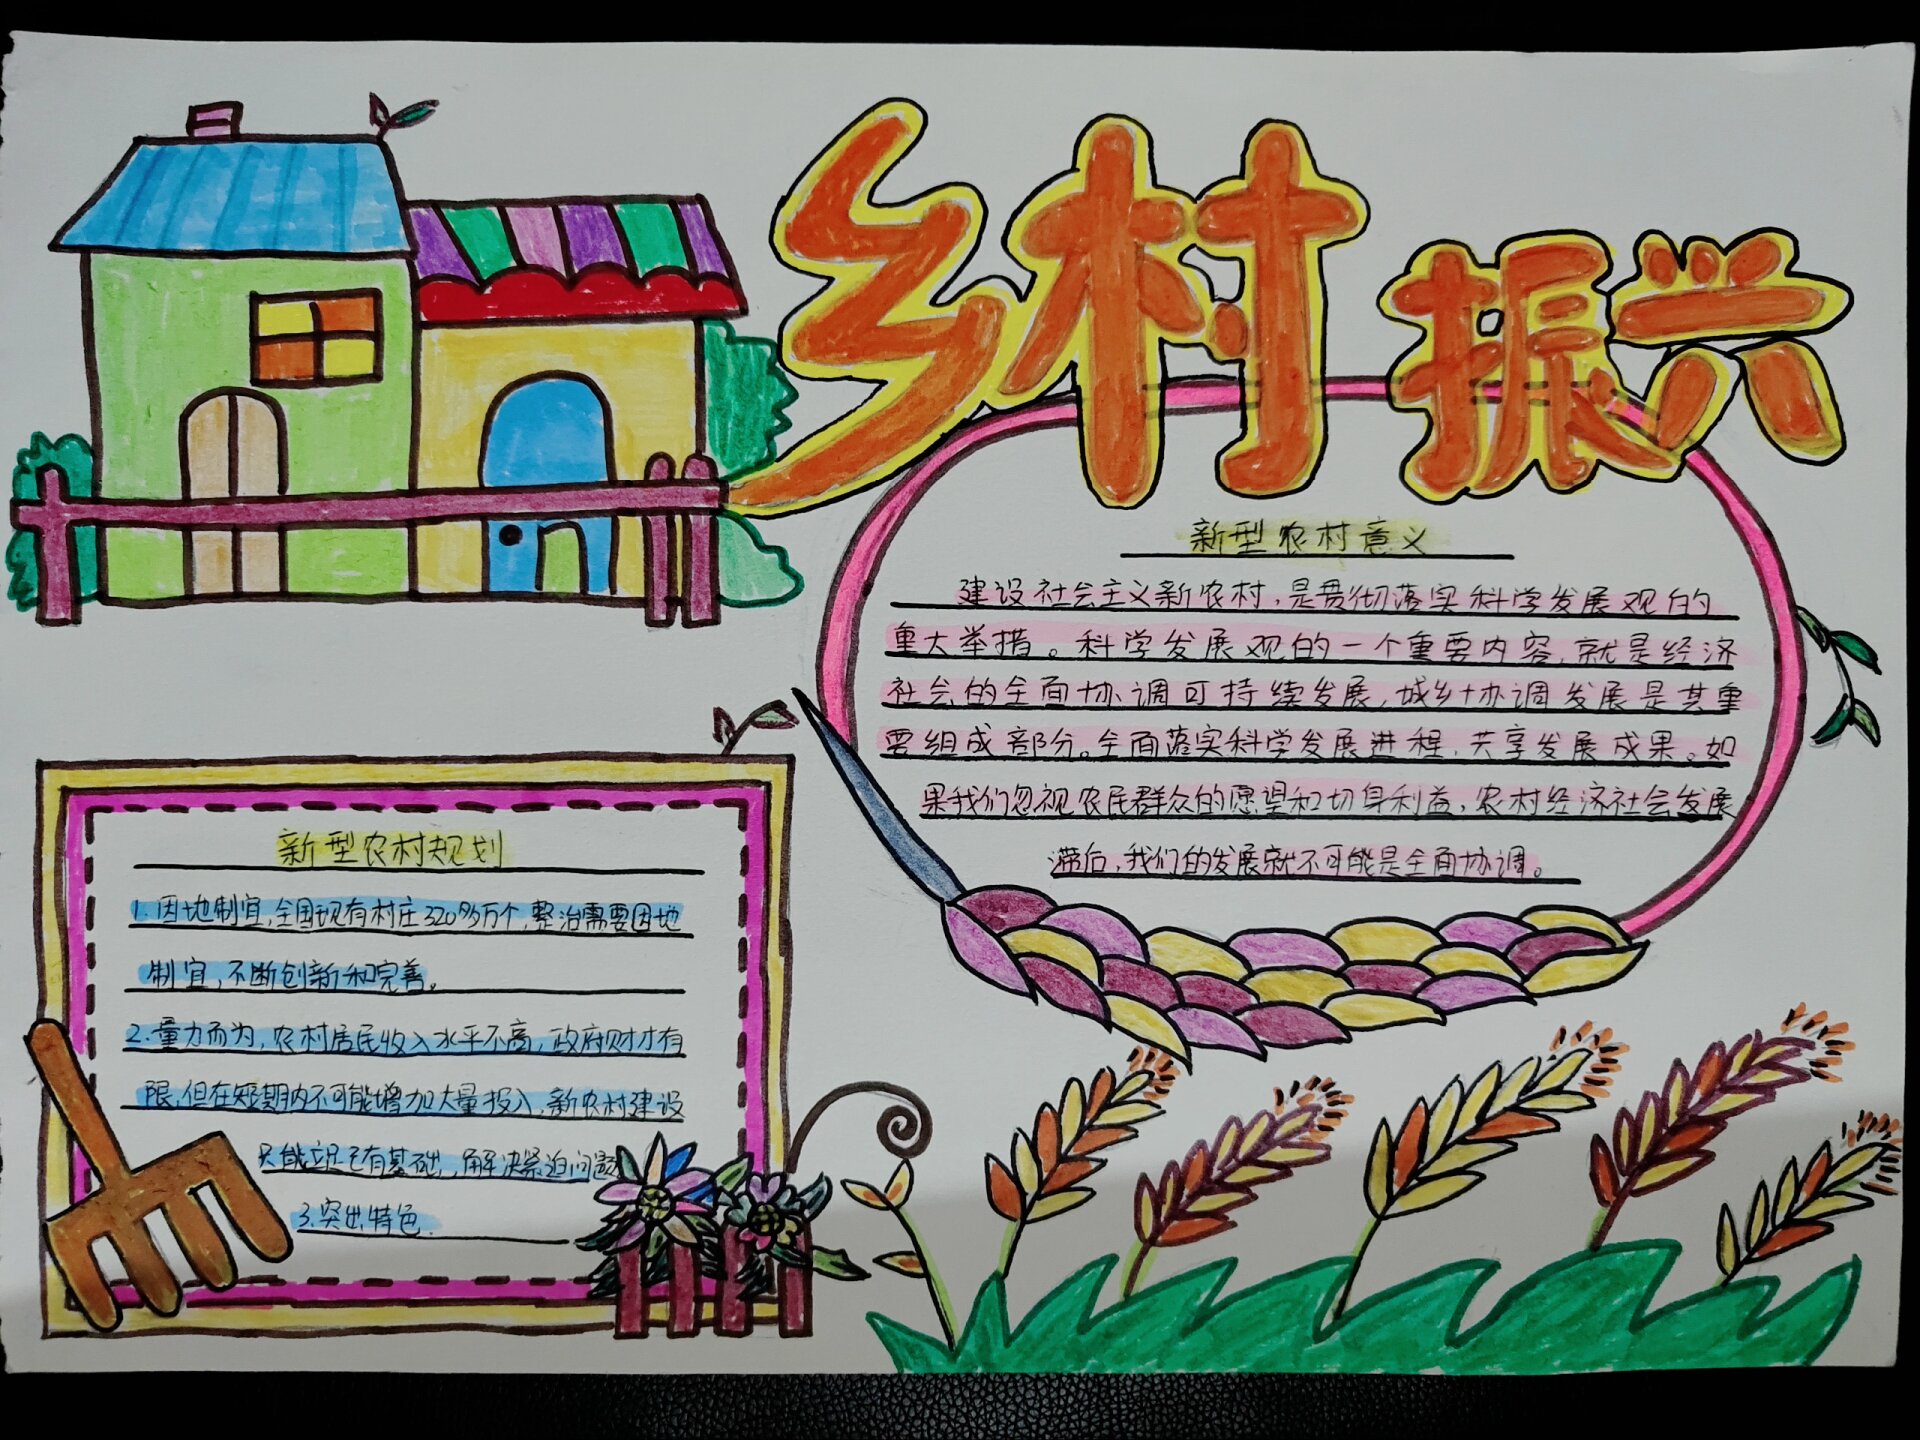 乡村振兴
新型农村意义
建设社会主义新农村，是贯彻落实科学发展观的
重大举措。科学发展观的一个重要内容，就是经济
社会的全面协调可持续发展，城乡协调发展是其重
要组成部分。全面落实科学发展进程，共享发展成果。如
果我们忽视农民群众的愿望和切身利益，农村经济社会发展
滞后，我们的发展就不可能是全面协调。
新型农村规划
1.因地制宜，全国现有村庄320多万个，整治需要因地
制宜，不断创新和完善。
2.量力而为，农村居民收入水平不高，政府财才有
限，但在短期内不可能增加大量投入，新农村建设
只能立足已有基础，解决紧迫问题
3.突出特色.